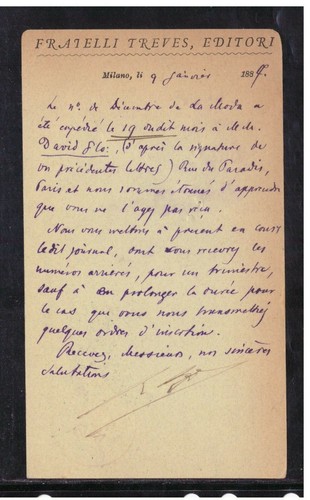 FRATELLI TREVES, EDITORI
Milano, li 9 Janvier 188
Le nº. de Décembre de La Moda a
été expédié le 19 dudit mois à M.M.
David &
(d'après la signature de
vos précédentes lettres) Rue du Paradis,
Paris et nous sommes étonnés d'apprendre
que vous ne l'ayez pas reçu.
Nous vous mettons à présent en cours
ledit journal, dont vous recevez les
numéros arriérés, pour un trimestre,
sauf à en prolonger la durée pour
le cas que vous nous transmettiez
quelques ordres d'insertions.
Recevez, Messieurs, nos sincères
salutations